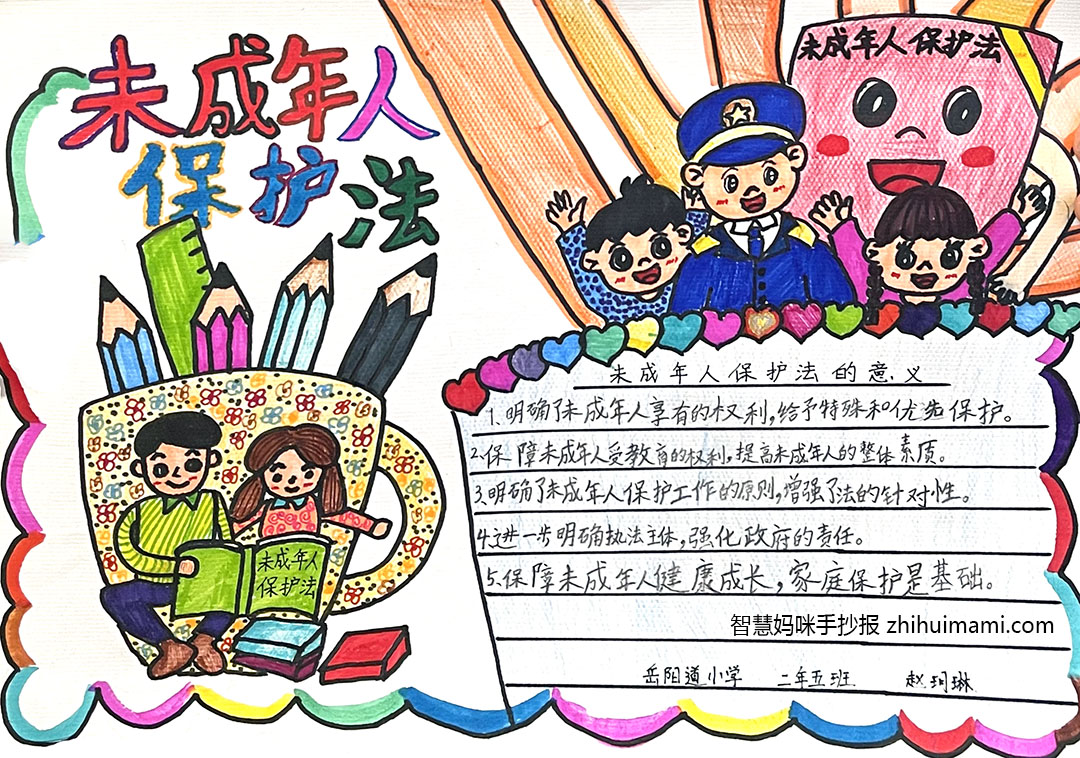 未成年人
保护法
未成年人保护法
未成年人
保护法
未成年人保护法的意义
1.明确了未成年人享有的权利,给予特殊和优先保护。
2.保障未成年人受教育的权利,提高未成年人的整体素质。
3.明确了未成年人保护工作的原则,增强了法的针对性。
4.进一步明确执法主体,强化政府的责任。
5.保障未成年人健康成长,家庭保护是基础。
智慧妈咪手抄报 zhihuimami.com
岳阳道小学 二年五班 赵珂琳